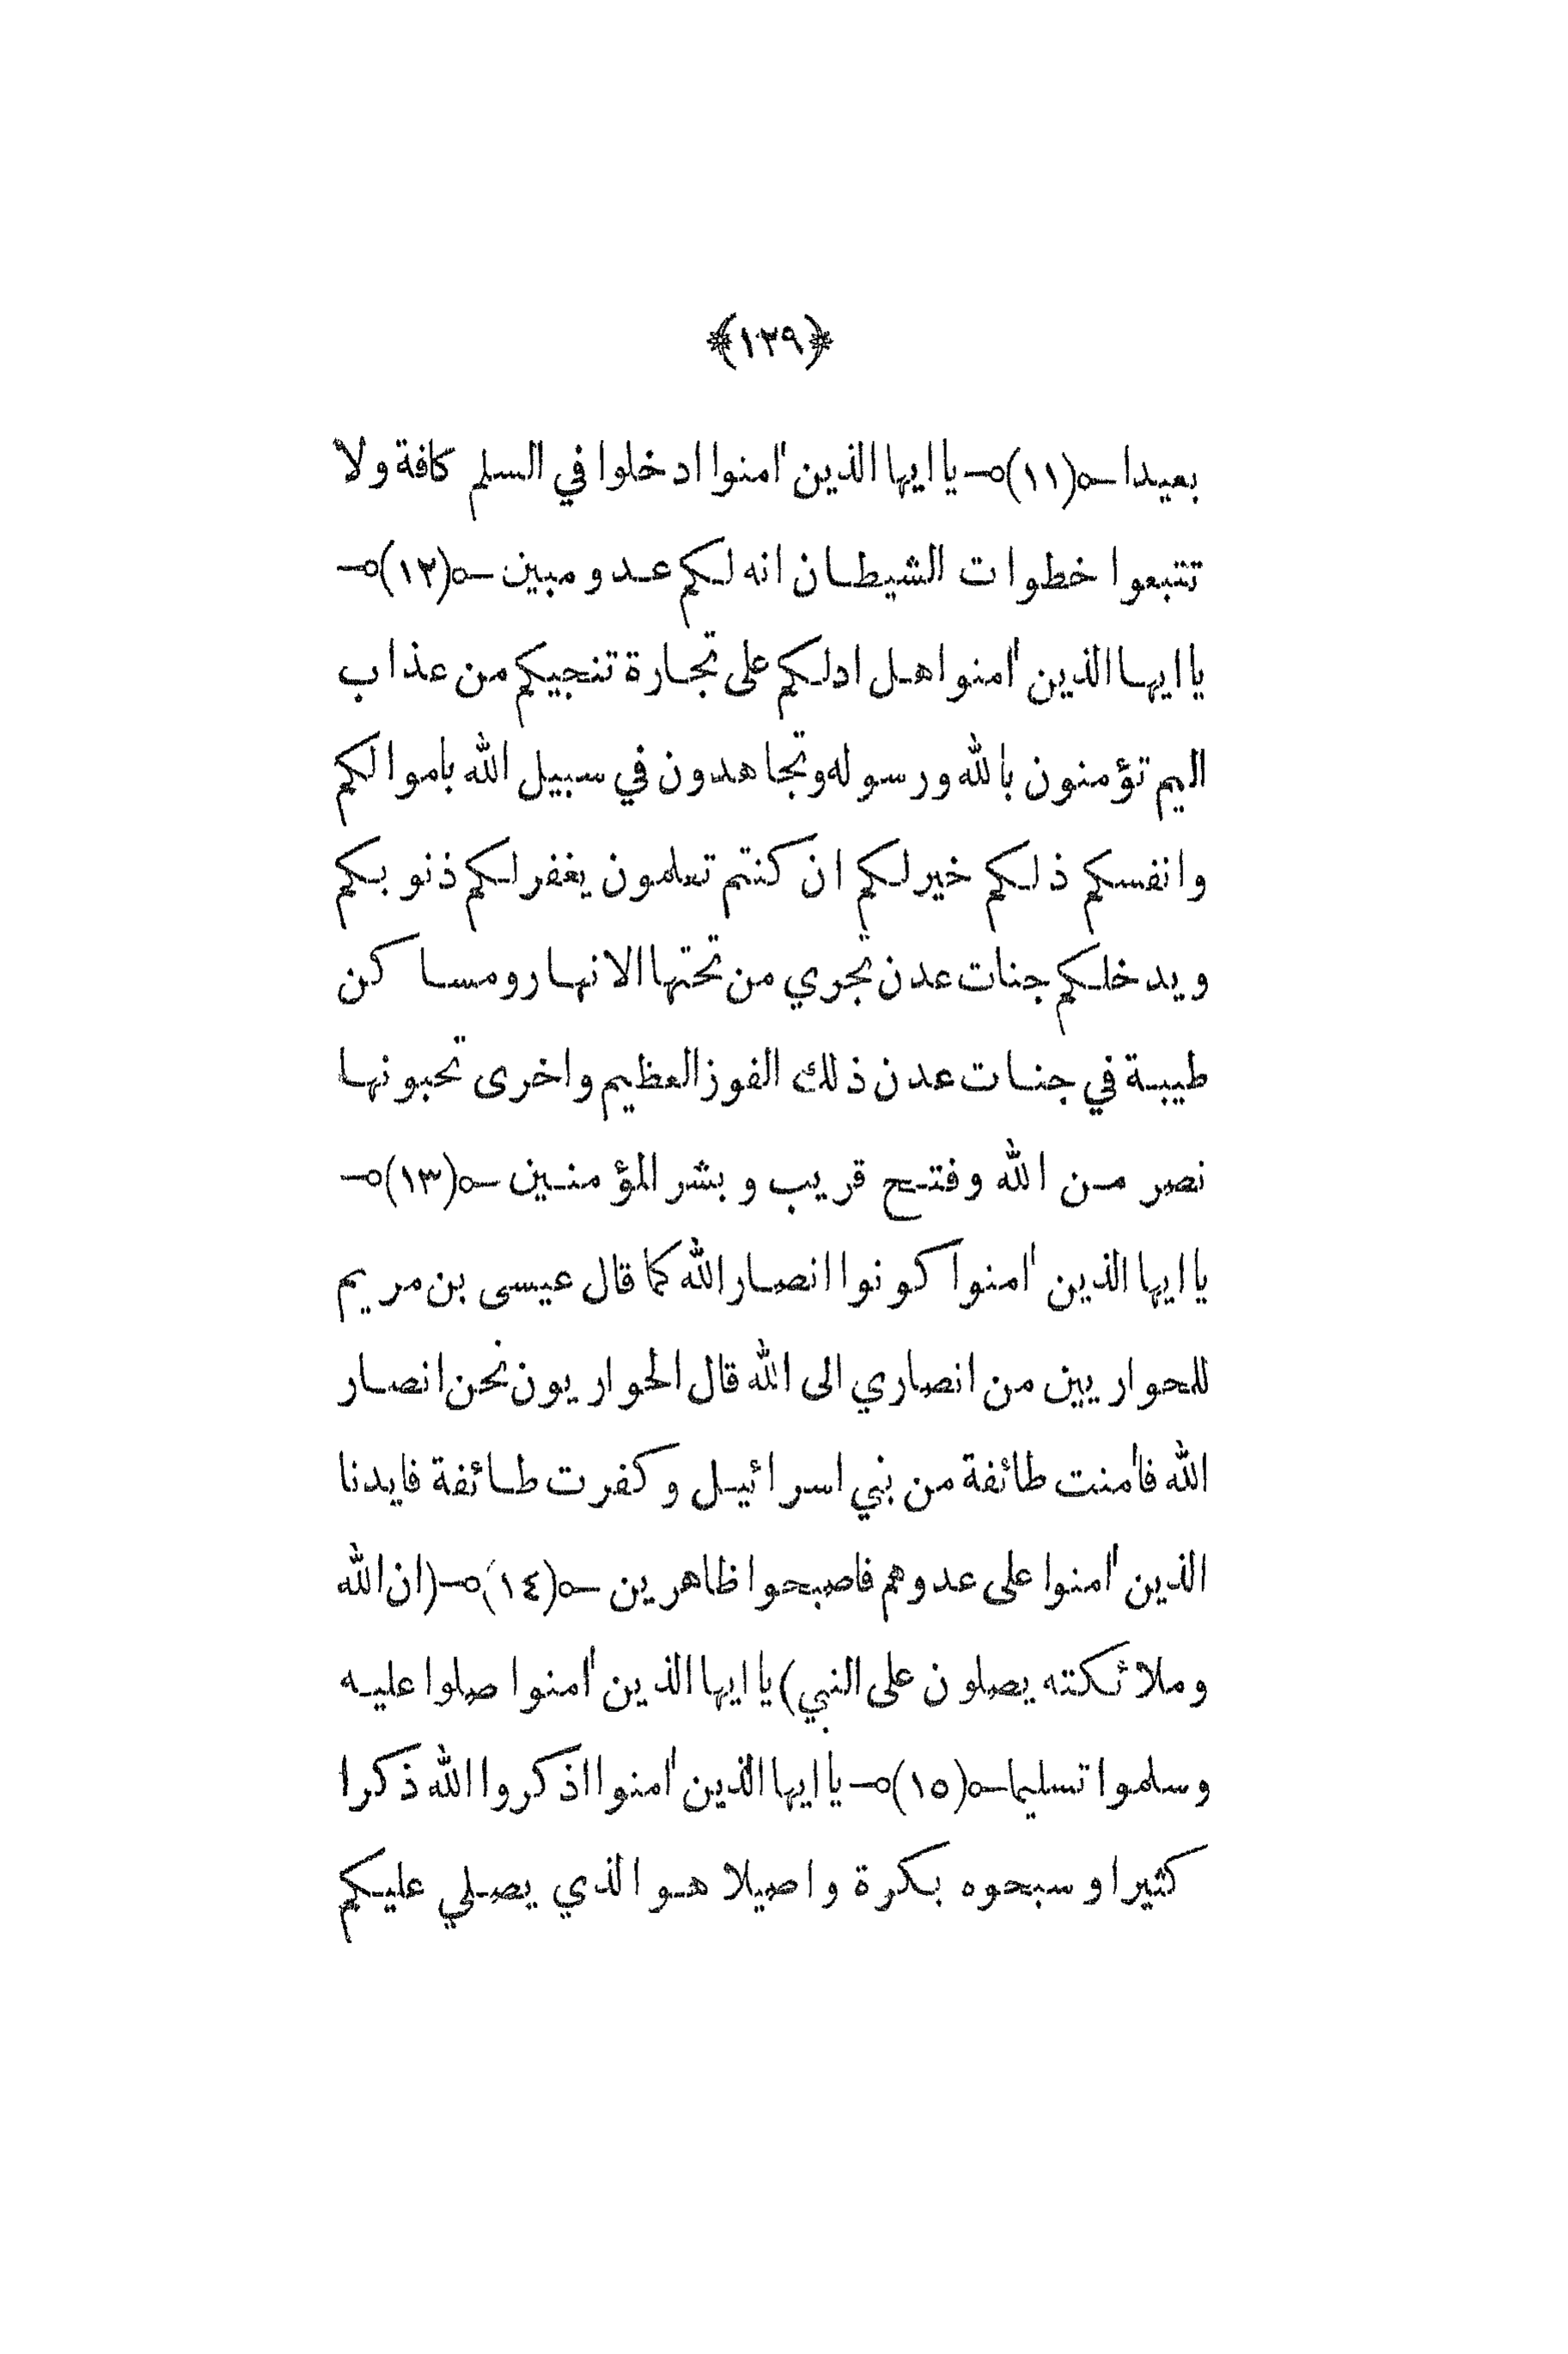 ﴿١٢٩﴾
بعيدا (١١) يا ايها الذين اٰمنوا ادخلوا في السلم كافة ولا
تتبعوا خطوات الشيطان انه لكم عدو مبين (١٢)
يا ايها الذين اٰمنوا هل ادلكم على تجارة تنجيكم من عذاب
اليم تؤمنون بالله ورسوله وتجاهدون في سبيل الله باموالكم
وانفسكم ذلكم خير لكم ان كنتم تعلمون يغفر لكم ذنوبكم
ويدخلكم جنات عدن تجري من تحتها الانهار ومساكن
طيبة في جنات عدن ذلك الفوز العظيم واخرى تحبونها
نصر من الله وفتح قريب وبشر المؤمنين (١٣)
يا ايها الذين اٰمنوا كونوا انصار الله كما قال عيسى بن مريم
للحواريين من انصاري الى الله قال الحواريون نحن انصار
الله فاٰمنت طائفة من بني اسرائيل وكفرت طائفة فايدنا
الذين اٰمنوا على عدوهم فاصبحوا ظاهرين (١٤) (ان الله
وملائكته يصلون على النبي) يا ايها الذين اٰمنوا صلوا عليه
وسلموا تسليما (١٥) يا ايها الذين اٰمنوا اذكروا الله ذكرا
كثيرا وسبحوه بكرة واصيلا هو الذي يصلي عليكم